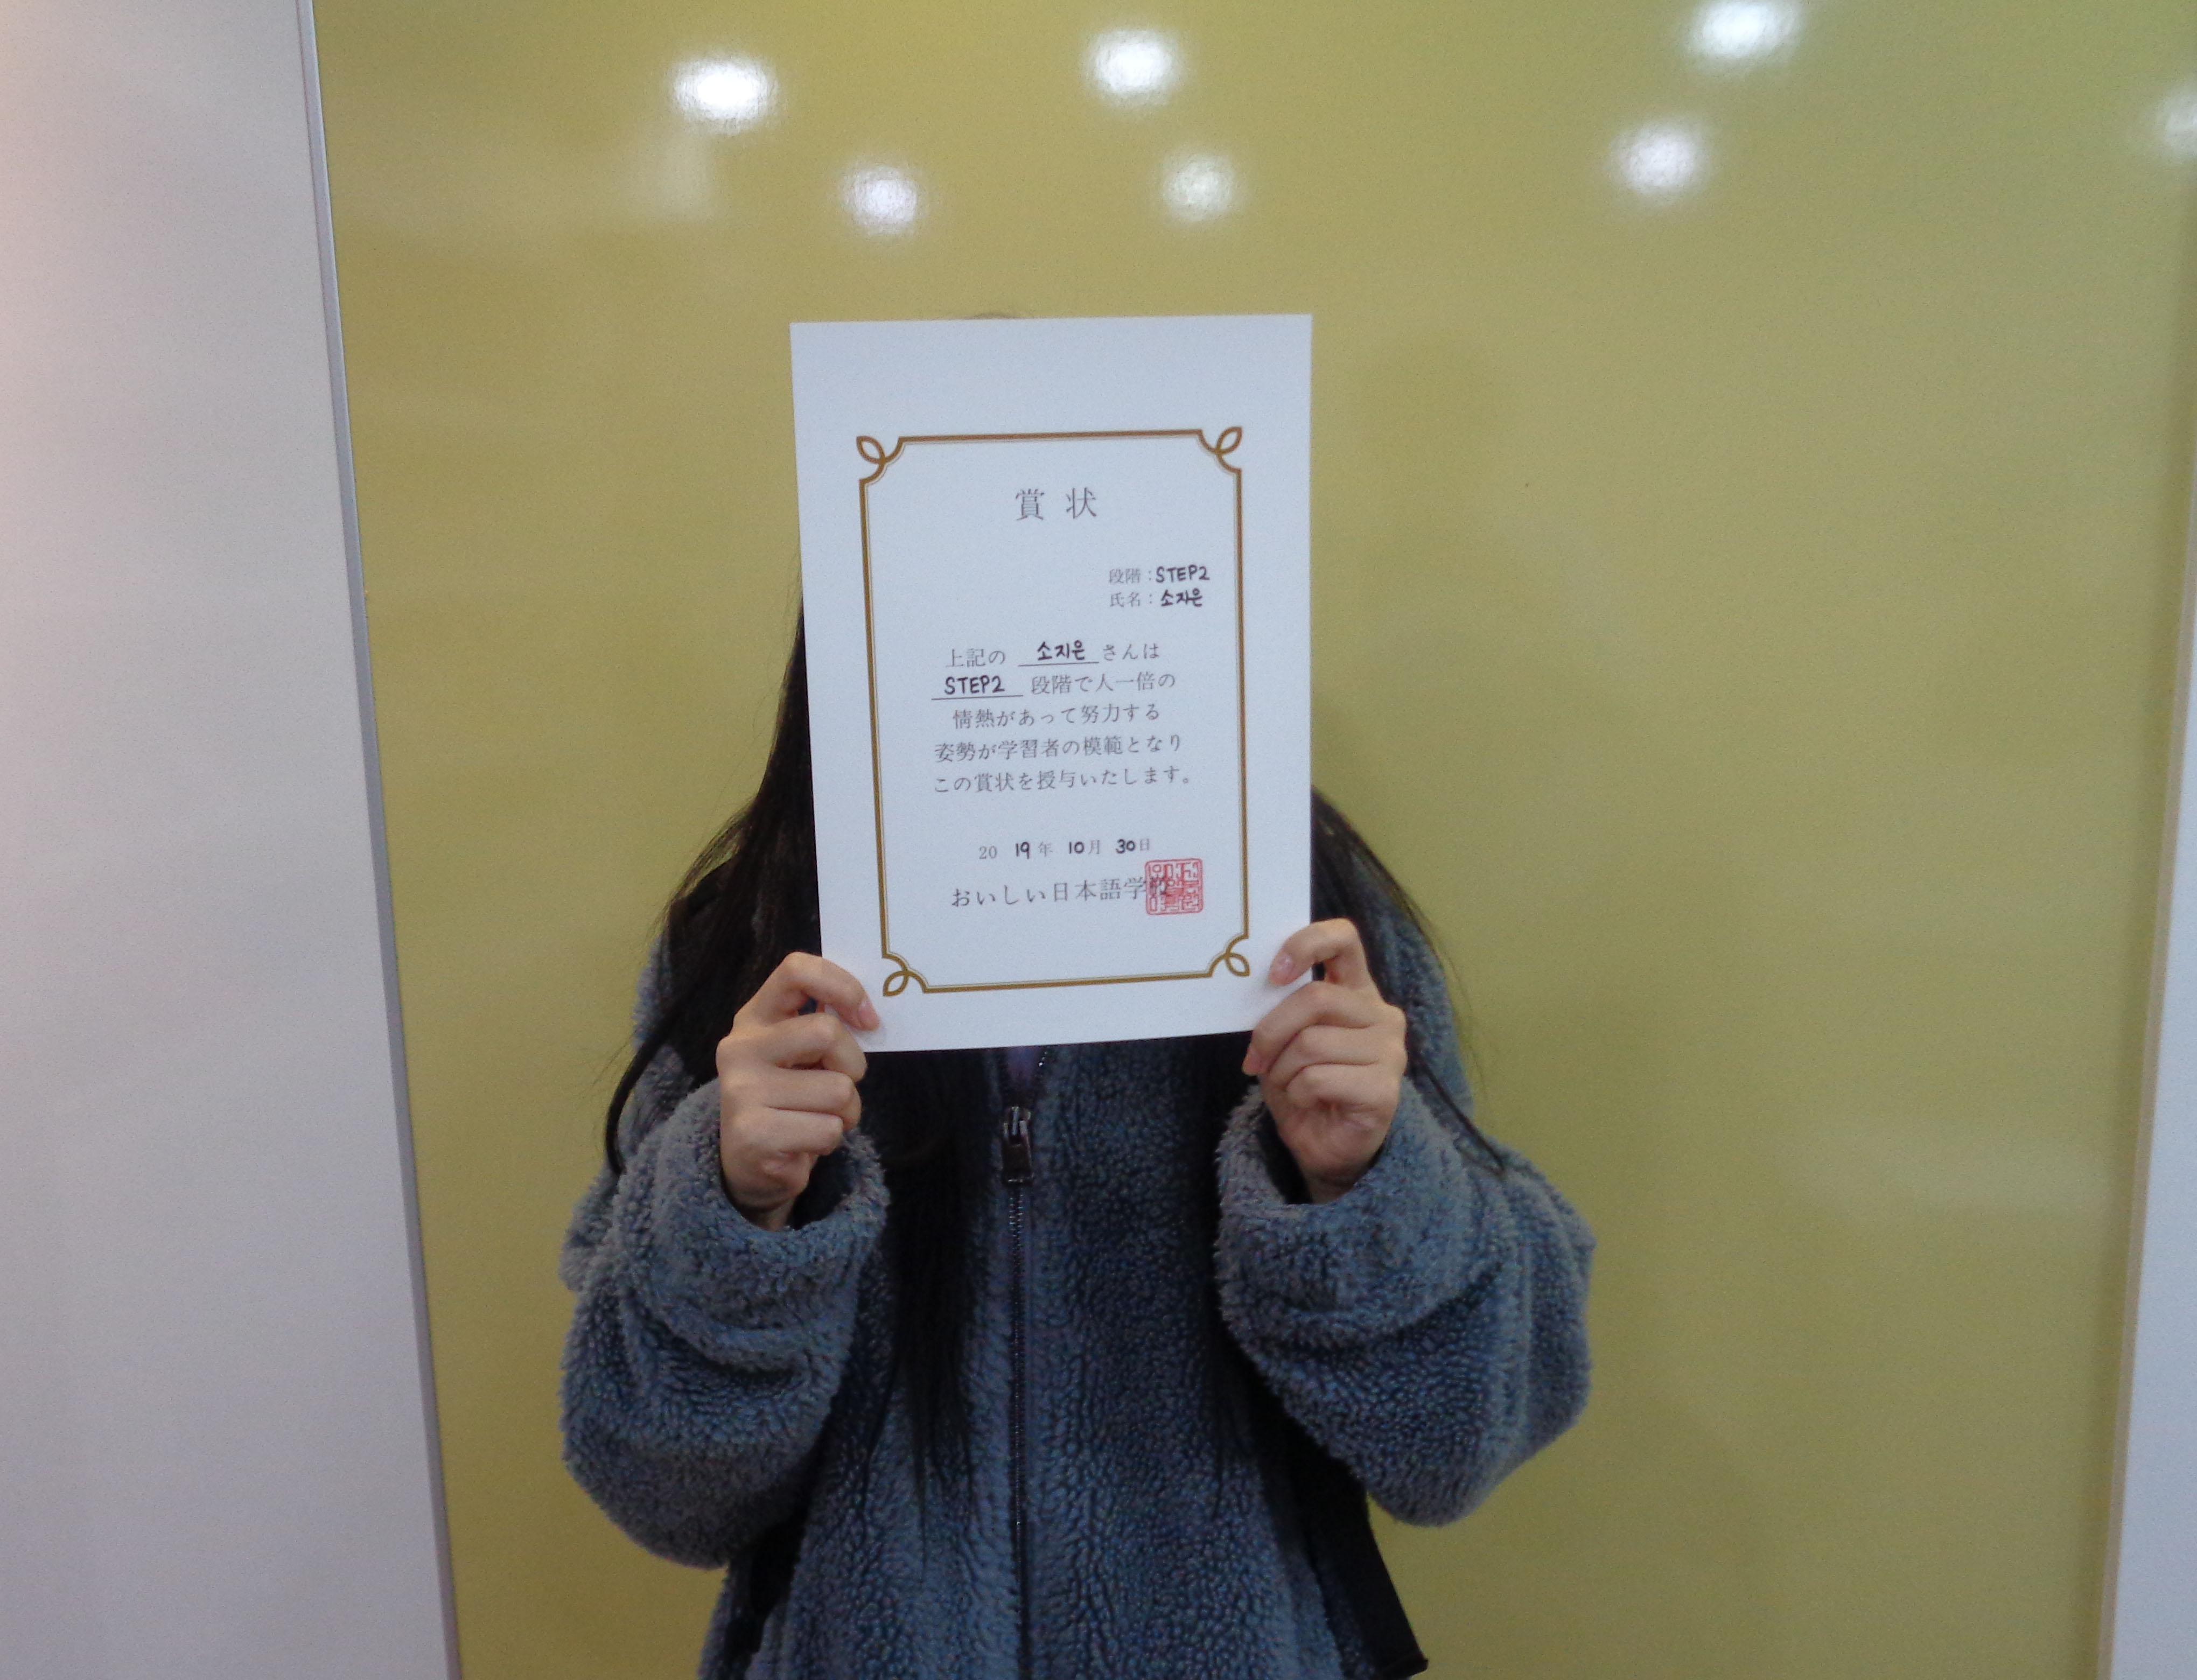 賞状
段階：STEP2
氏名：소지은
上記の 소지은 さんは
STEP2 段階で人一倍の
情熱があって努力する
姿勢が学習者の模範となり
この賞状を授与いたします。
2019年 10月 30日
おいしい日本語学校